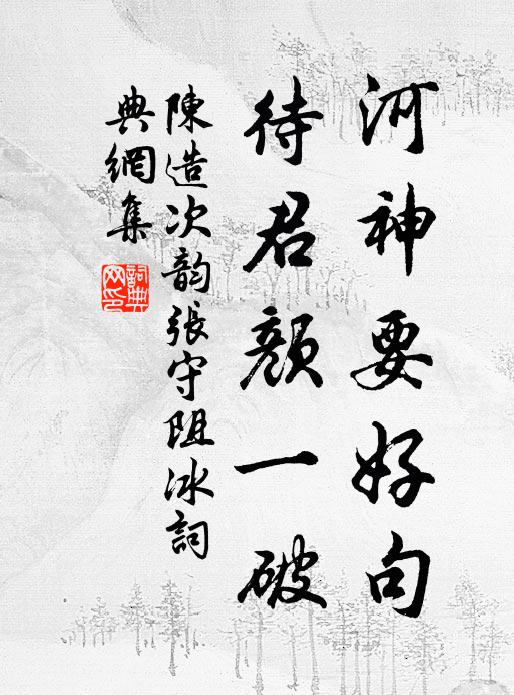 河神要好句
待君颜一破
陳造次韵張守阻冰詞
典網集
詞典网印